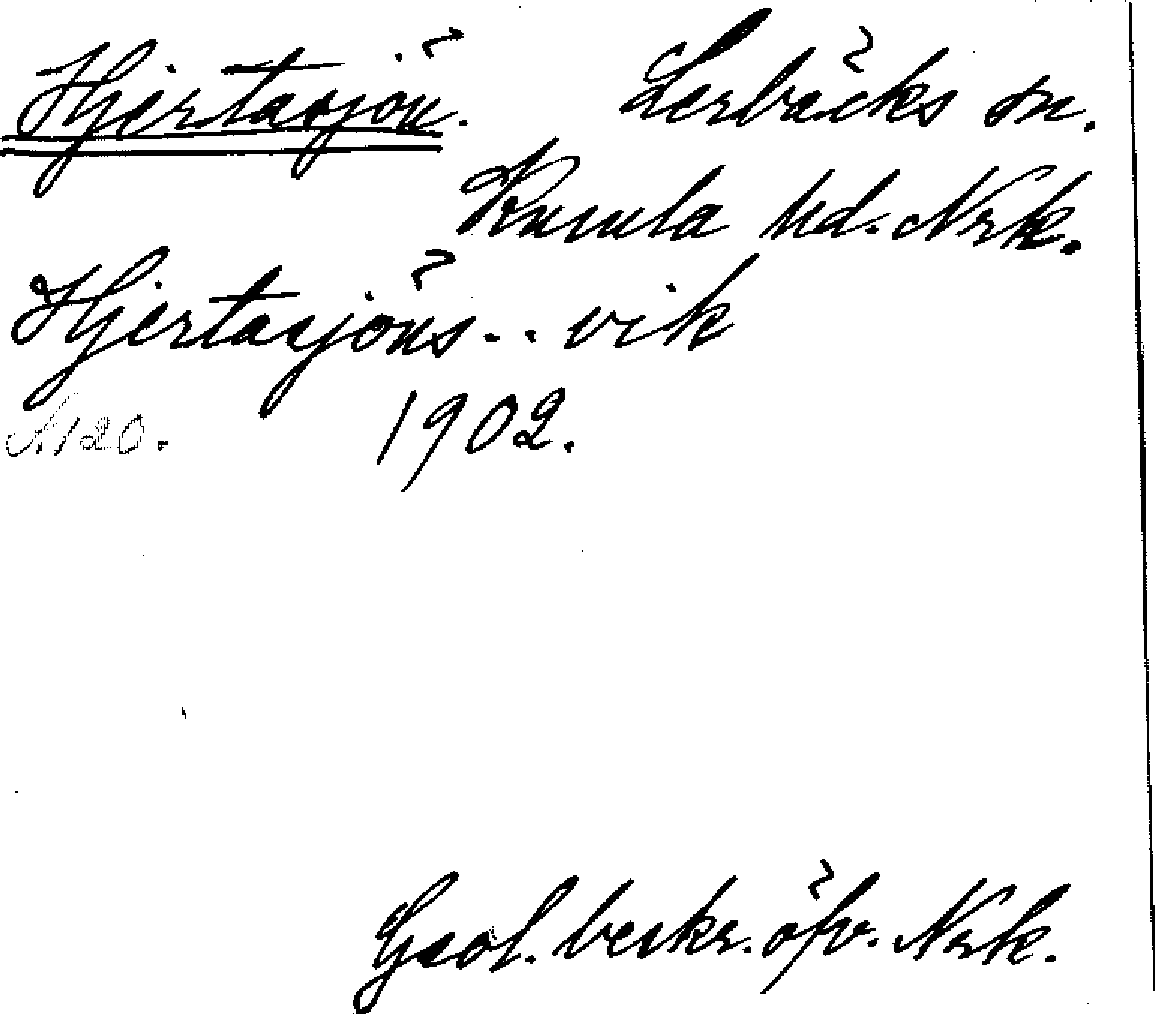 Hjertasjön. Lerbäcks sn.
Kumla hd. Nrk.
Hjertasjöns-.. vik
N. 120. 1902.
Geol. beskr. öfv. Nrk.